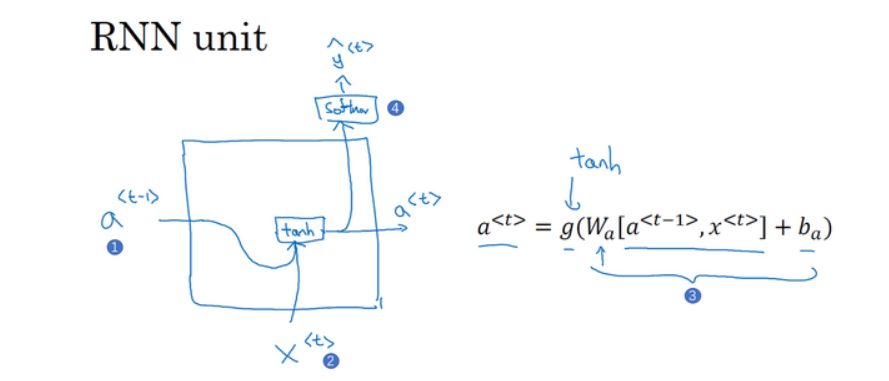 RNN unit
ŷ<t>
softmax
4
a<t-1>
1
tanh
a<t>
x<t>
2
tanh
a<t> = g(Wa[a<t-1>,x<t>] + ba)
3